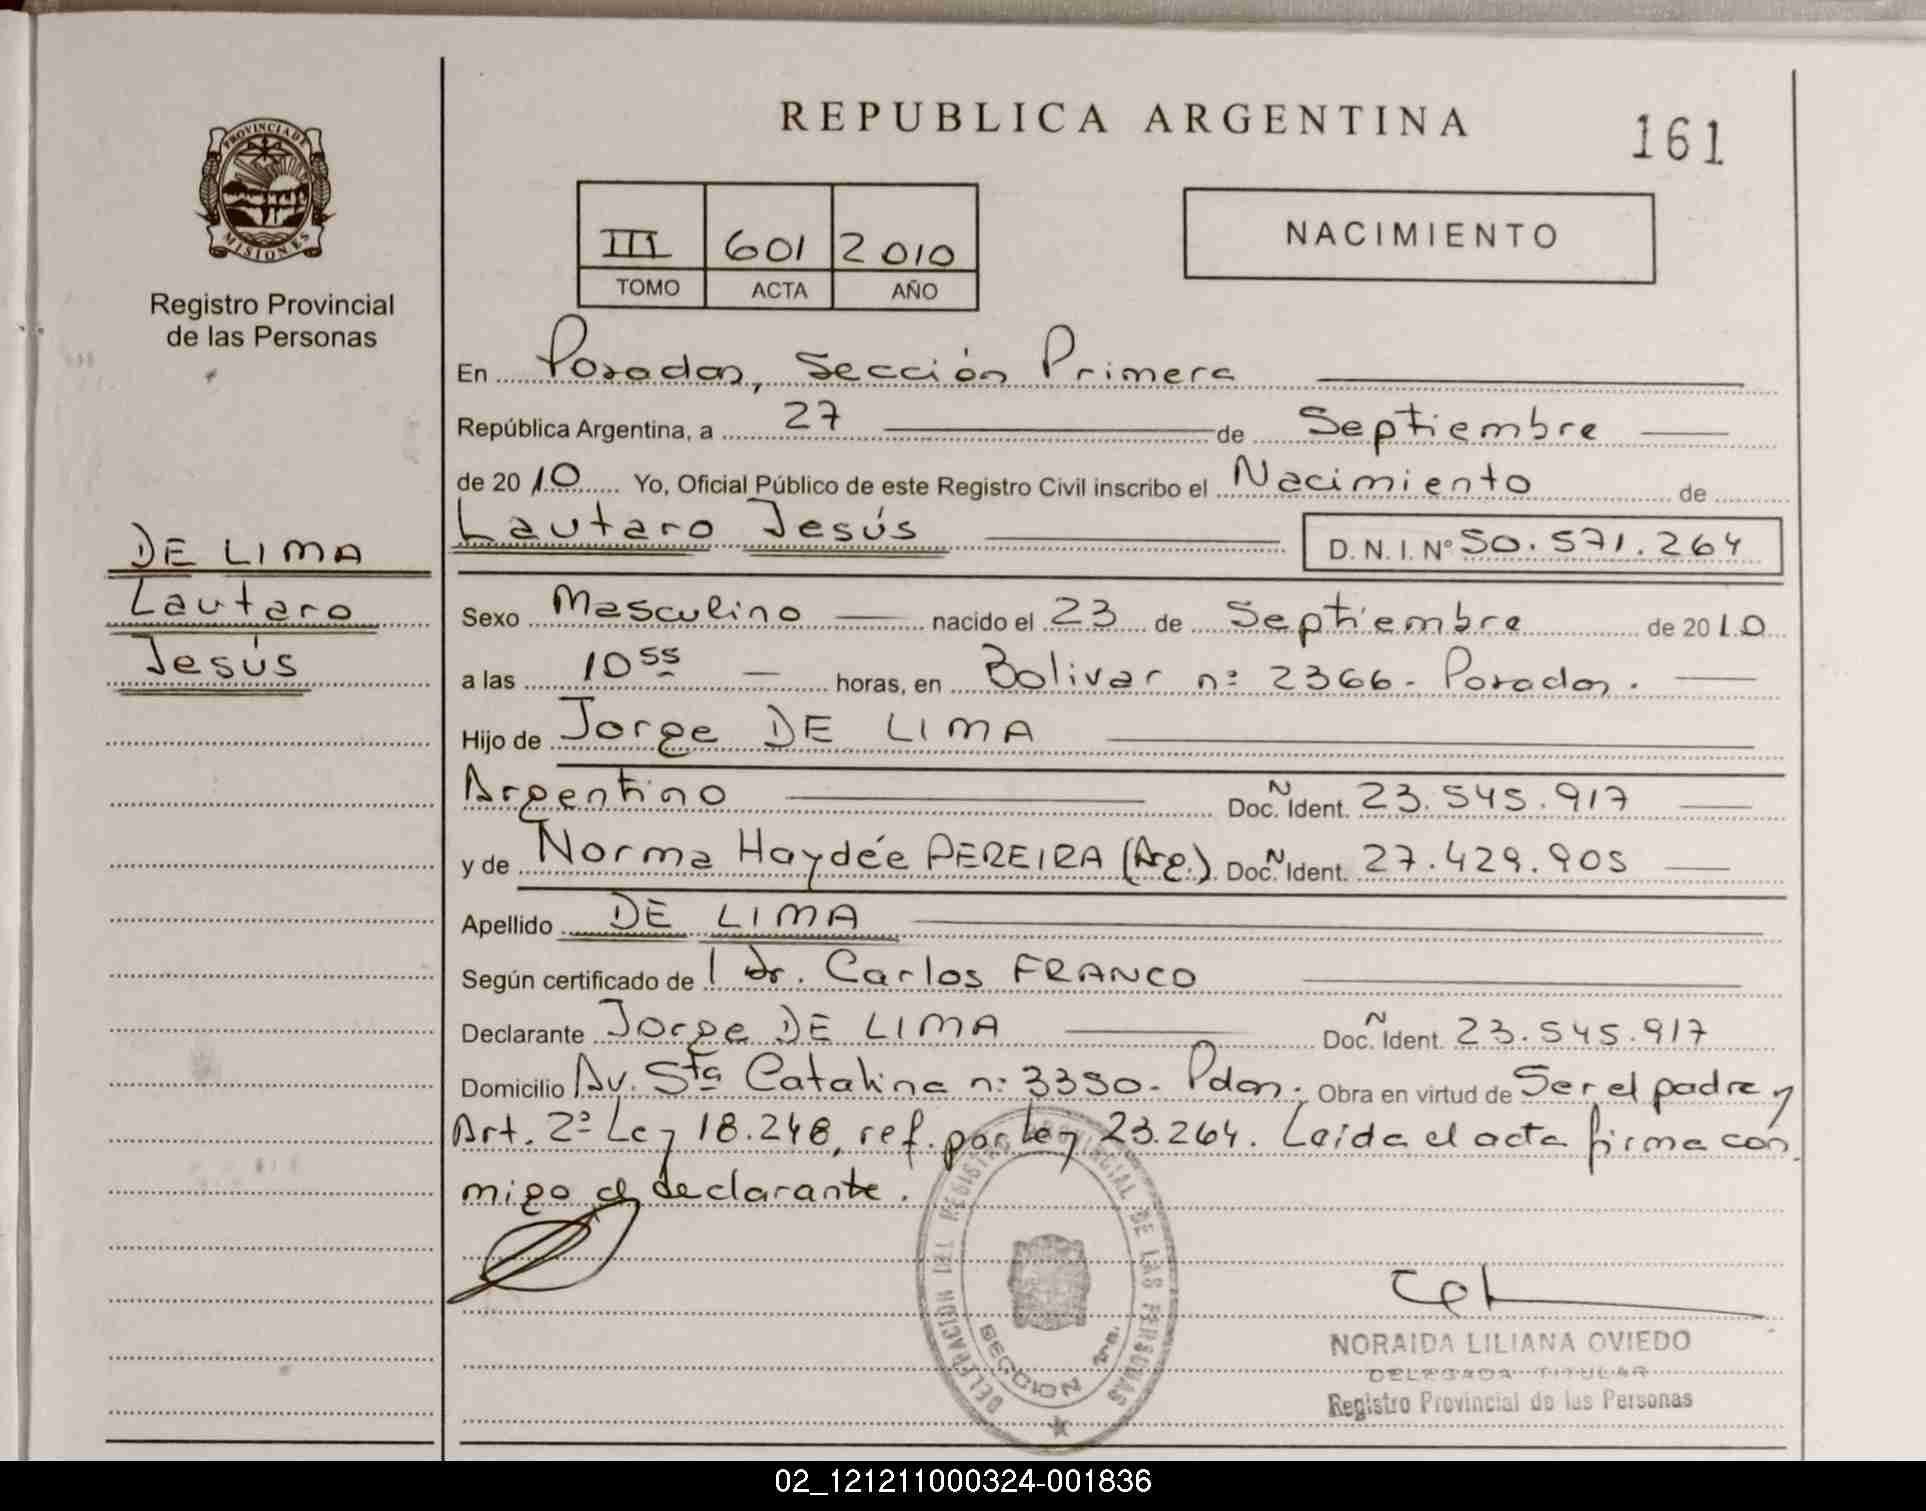 REPUBLICA ARGENTINA
161
PROVINCIA DE
MISIONES
Registro Provincial
de las Personas
III 601 2010
TOMO ACTA AÑO
NACIMIENTO
En Posadas, Sección Primera
República Argentina, a 27 de Septiembre
de 2010 Yo, Oficial Público de este Registro Civil inscribo el Nacimiento de
Lautaro Jesús D. N. I. Nº 50.571.264
DE LIMA
Lautaro
Jesús
Sexo Masculino nacido el 23 de Septiembre de 2010
a las 10 55 horas, en Bolivar nº 2366- Posadas.
Hijo de Jorge DE LIMA
Argentino Doc. N Ident. 23.545.917
y de Norma Haydée PEREIRA (Arg.). Doc. N Ident. 27.429.905
Apellido DE LIMA
Según certificado de Dr. Carlos FRANCO
Declarante Jorge DE LIMA Doc. N Ident. 23.545.917
Domicilio Av. Sta Catalina nº 3350- Pdas. Obra en virtud de Ser el padre y
Art. 2º Ley 18.248, ref. por Ley 23.264. Leída el acta firma con
migo el declarante.
DELEGACION DEL REGISTRO PROVINCIAL DE LAS PERSONAS
SECCION 1ra.
NORAIDA LILIANA OVIEDO
DELEGADA TITULAR
Registro Provincial de las Personas
02_121211000324-001836